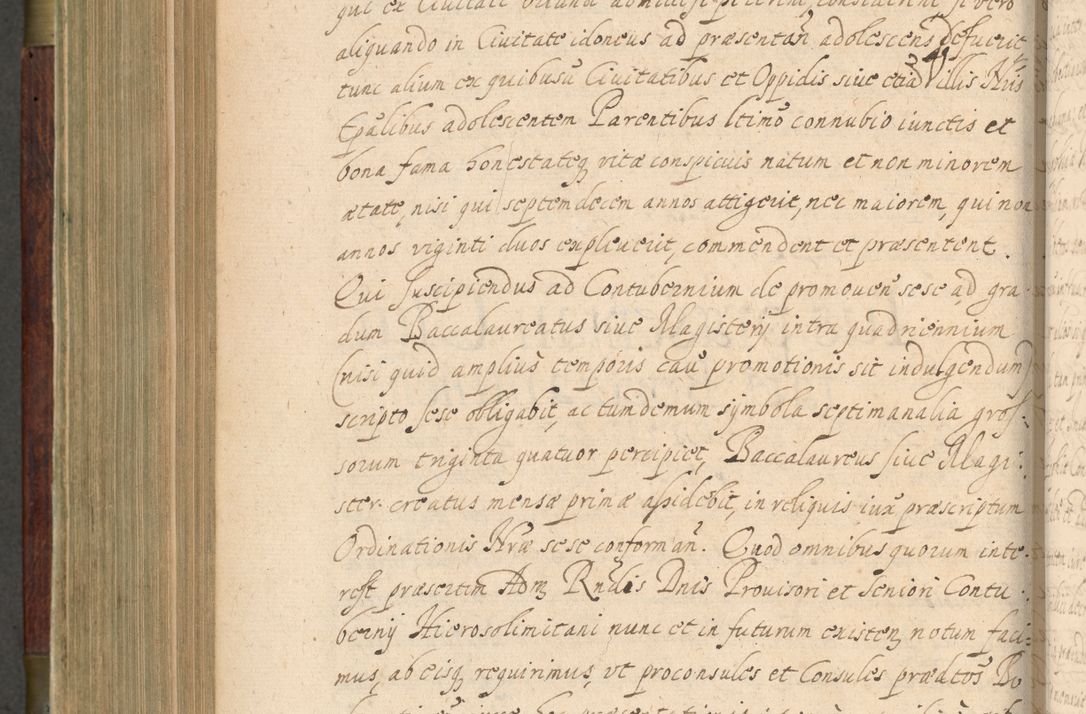 qui ex Ciuitate oriundi
aliquando in Ciuitate idoneus ad præsentan̄ adolescens defuerit
tunc alium ex quibusũ Ciuitatibus et Oppidis siue etiã Villis Nr̃is
Ep̃alibus adolescentem Parentibus ltimo connubio iunctis et
bona fama honestateq vitæ conspicuis natum et non minorem
ætate, nisi qui septemdecem annos attigerit, nec maiorem, qui non
annos viginti duos expleuerit, commendent et præsentent.
Qui suscipiendus ad Contubernium de promouen̄ sese ad gra
dum Baccalaureatus siue Magisterij intra quadriennium
(nisi quid amplius temporis cau promotionis sit indulgendum)
scripto sese obligabit, ac tumdemum symbola septimanalia gros:
sorum triginta quatuor percipiet, Baccalaureus siue Magi:
ster creatus mensæ primæ assidebit, in reliquis iux̃ præscriptum
Ordinationis Nr̃æ sese conforman̄. Quod omnibus quorum inte:
rest præsertim Adm Rñdis Dnis Prouisori et Seniori Contu:
bernij Hierosolimitani nunc et in futurum existen notum faci:
mus, ab eisq requirimus, vt proconsules et Consules prædtos Bo